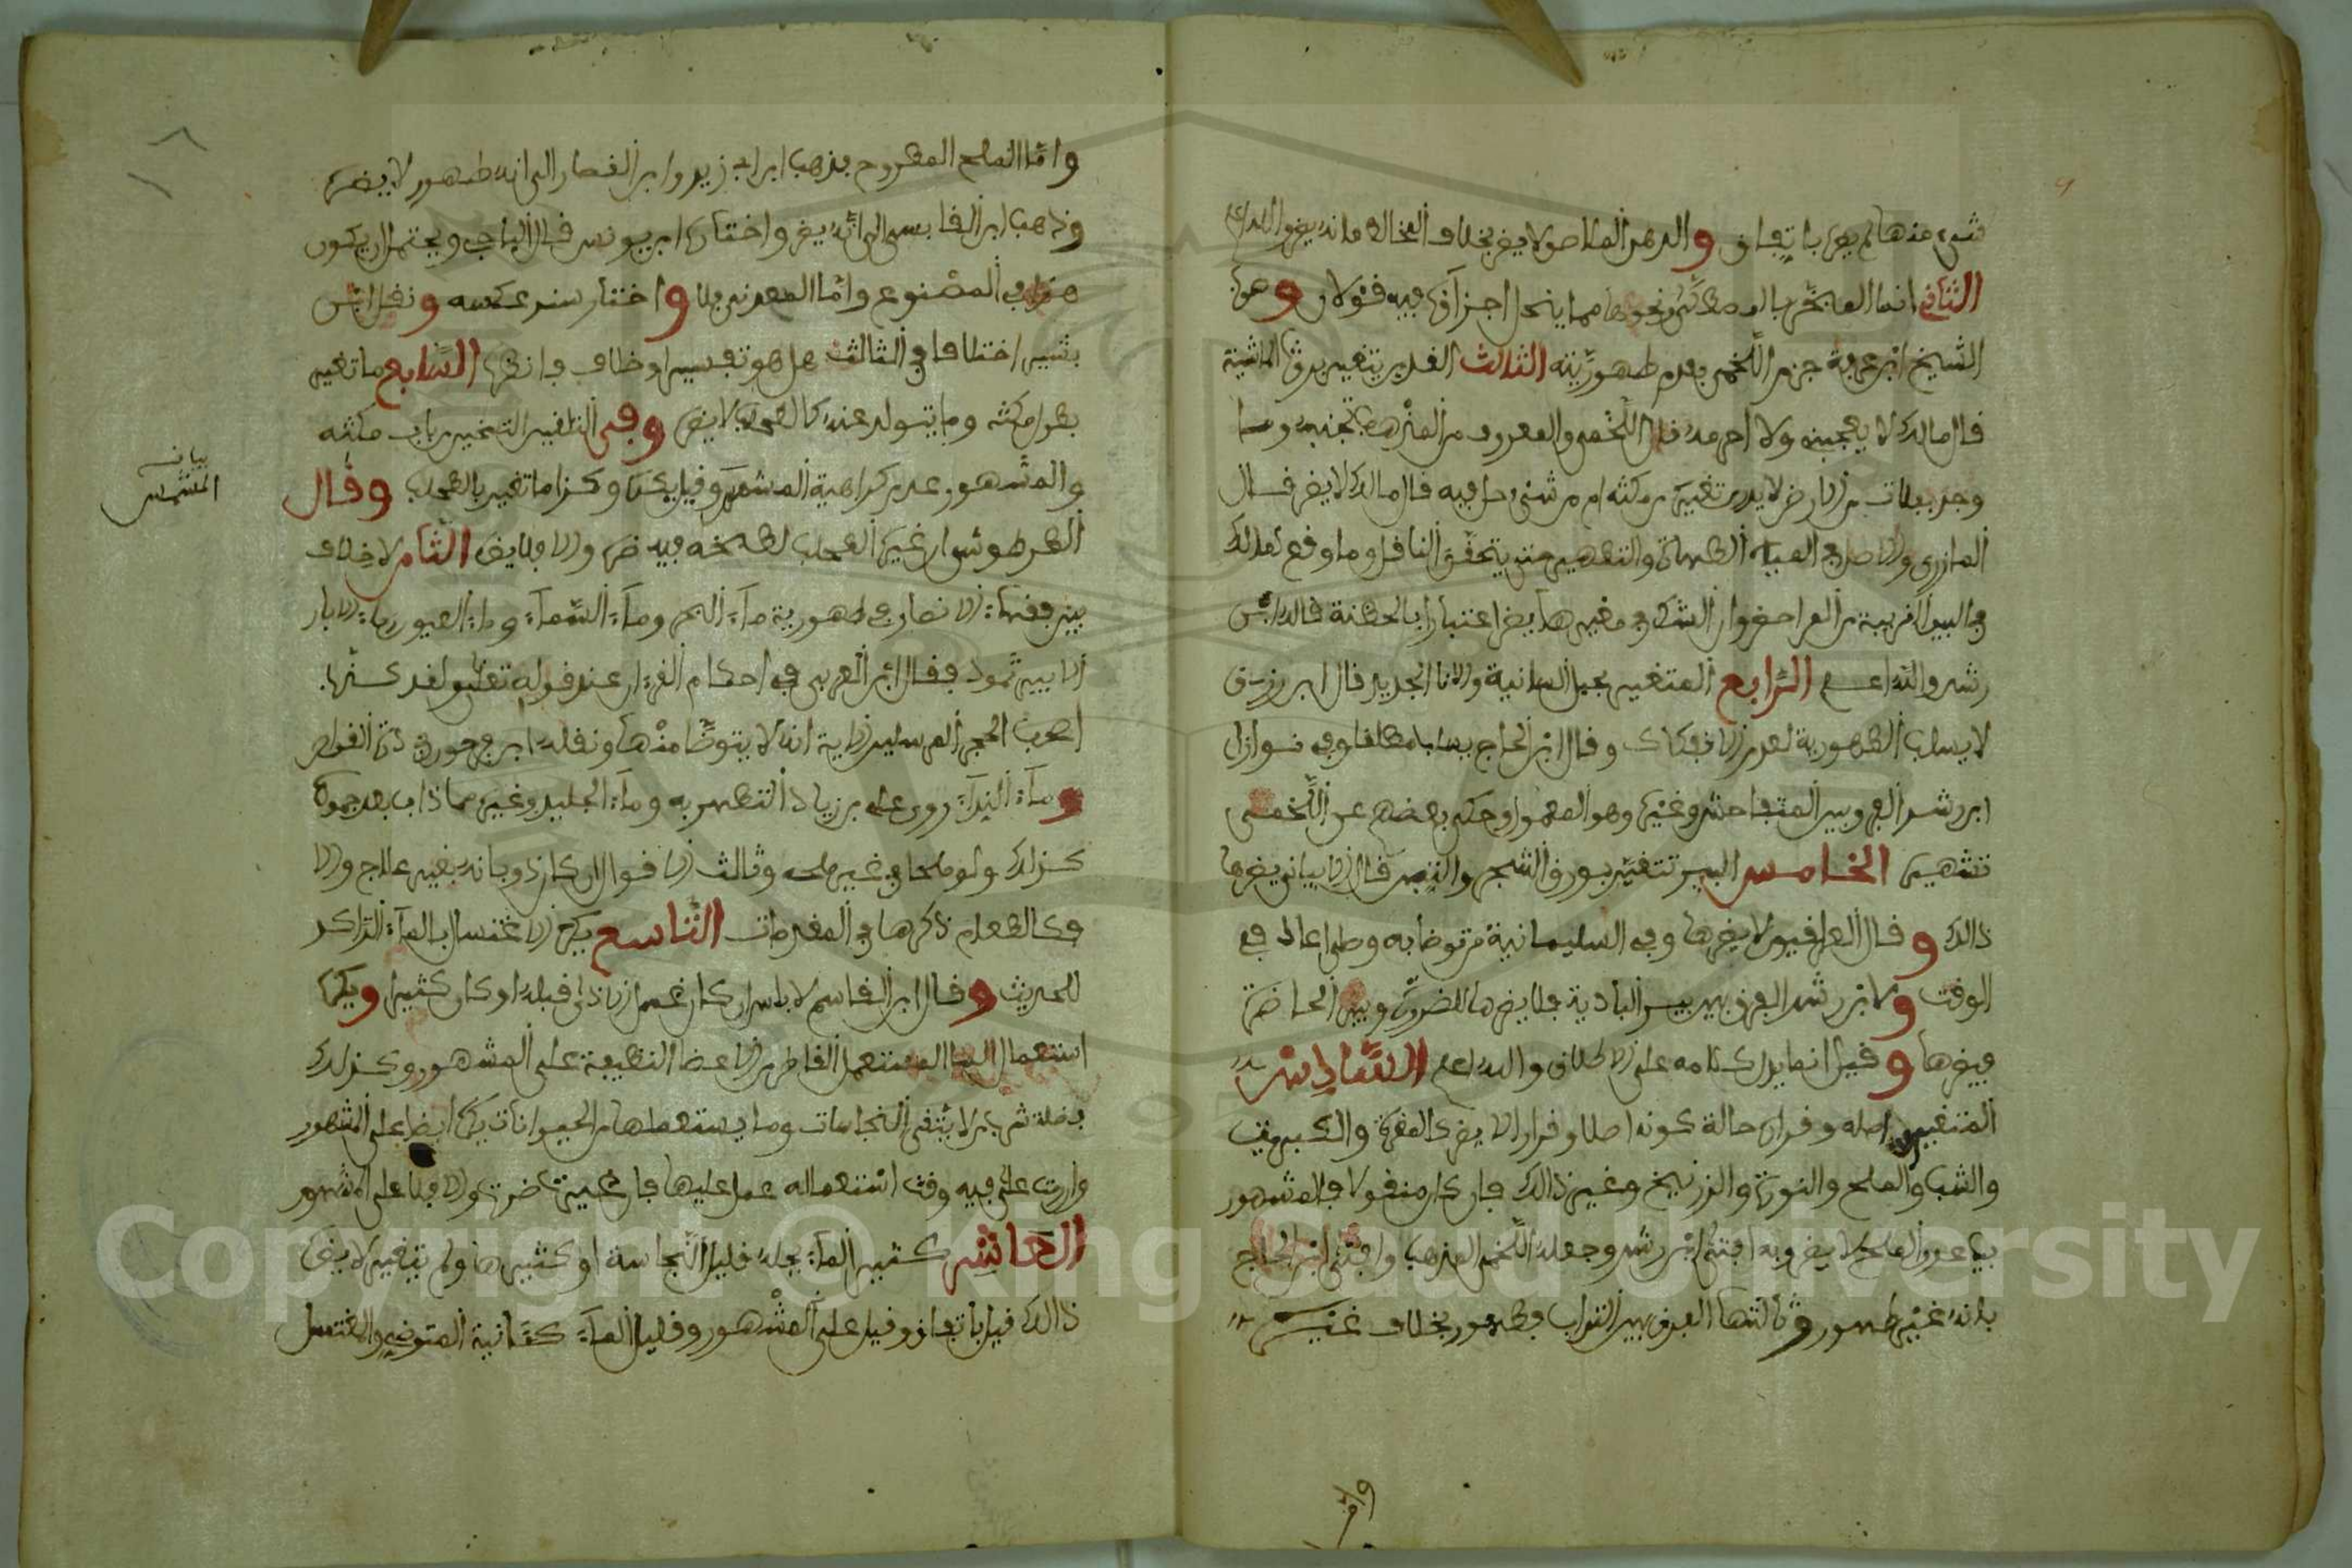 شيء منها لم يضر باتفاق والدهن الملاصق لا يضر بخلاف المخالط فانه يضر والله اعلم
الثاني انما المبخر بالمصطكى ونحوها مما ينحل اجزاؤه فيه قولان
الشيخ ابن عرفة جزم اللخمي بعدم طهوريته الثالث الغدير يتغير بروث الماشية
قال مالك لا يعجبني ولا احرمه قال اللخمي والمعروف من المذهب تجنبه وما
وجد بفلات من الارض لا يدرى تغيره من مكثه ام من شيء حل فيه قال مالك لا يضر قال
المازري والاصل في المياه الطهارة والتطهير حتى يتحقق الناقل وما وقع لمالك
في البير القريبة من المراحيض وان الشك في مغيرها يضر اعتبارا بالمظنة قاله ابن
رشد والله اعلم الرابع المتغير بحبل السانية والانا الجديد قال ابن رزق
لا يسلب الطهورية لعدم الانفكاك وقال ابن الحاج يسلب مطلقا وفي نوازل
ابن رشد الفرق بين المتفاحش وغيره وهو المعمول وحكى بعضهم عن اللخمي
تشهيره الخامس البير تتغير بورق الشجر والتبن قال الابياني يضرها
ذالك وقال العراقيون لا يضرها وفي السليمانية من توضا به وصلى اعاد في
الوقت ولابن رشد الفرق بين بير البادية فلا يضرها للضرورة وبير الحاضرة
فيضرها وقيل انما يدل كلامه على الاطلاق والله اعلم السادس
المتغير باصله وقراره حالة كونه اصلا وقرارا لا يضر كالمغرة والكبريت
والشب والملح والنورة والزرنيخ وغير ذالك فان كان منقولا فالمشهور
فيما عدا الملح لا يضر وبه افتى ابن رشد وجعله اللخمي المذهب وافتى ابن الحاج
بانه غير طهور وثالثها الفرق بين التراب فطهور بخلاف غيره
واما الملح المطروح فذهب ابن ابي زيد وابن القصار الى انه طهور لا يضره
وذهب ابن القابسي الى انه يضر واختاره ابن يونس قال الباجي ويحتمل ان يكون
هذا في المصنوع واما المعدني فلا واختار سند عكسه ونقل ابن
بشير اختلافا في الثالث هل هو تفسير او خلاف فانظره السابع ما تغير
بطول مكثه وما يتولد عنه كالطحلب لا يضر وفي التلقين التخيير باب مكثه
والمشهور عدم كراهية المشمس وقيل يكره وكذا ما تغير بالطحلب وقال
الطرطوشي ان غيره الطحلب لطبخه فيه ضر والا فلا يضر الثامن لا خلاف
بين فقهاء الامصار في طهورية ماء البحر وماء السماء وماء العيون وماء الابار
الا بير ثمود فقال ابن العربي في احكام القرءان عند قوله تعلى ولقد كذب
اصحب الحجر المرسلين الاية انه لا يتوضا منها ونقله ابن فرحون
وماء الندا روى علي بن زياد التطهر به وماء الجليد وغيره مما ذاب بعد جموده
كذلك ولو ملحا في غير ملحه وثالث الاقوال ان كان ذوبانه بغير علاج والا
فكالطعام ذكرها في المقدمات التاسع يكره الاغتسال بالماء الراكد
للحديث وقال ابن القاسم لا باس ان كان غسل الاذى قبله او كان كثيرا ويكره
استعمال الماء المستعمل القاطر من الاعضاء النظيفة على المشهور وكذلك
فضلة شرب من لا يتقى النجاسات وما يستعملها من الحيوانات يكره ايضا على المشهور
وان ريت على فيه وقت استعماله عمل عليها فان غيرته ضرته والا فلا على المشهور
العاشر كثير الماء يحله قليل النجاسة او كثيرها ولم يتغير لا يضره
ذالك قيل باتفاق وقيل على المشهور وقليل الماء كآنية المتوضي والمغتسل
بيان
المشمس